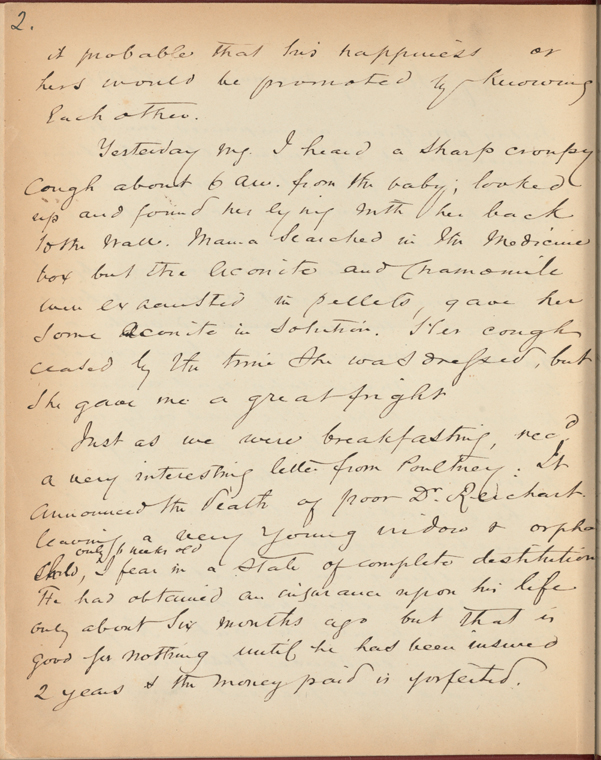 2.
it probable that his happiness or
hers would be promoted by knowing
Each other.
Yesterday mg. I heard a sharp croupy
Cough about 6 a.m. from the baby; looked
up and found her lying with her back
to the wall. Mama searched in the Medicine
box but the aconite and Chamomile
were exhausted in pellets, gave her
some aconite in solution. Her cough
ceased by the time she was dressed, but
she gave me a great fright
Just as we were breakfasting, rec'd
a very interesting letter from Poultney. It
announced the death of poor Dr. Reichart
leaving a very young widow & orphan
only 6 weeks old
child, I fear in a state of complete destitution
He had obtained an insurance upon his life
only about six months ago but that is
good for nothing until he has been insured
2 years & the money paid is forfeited.